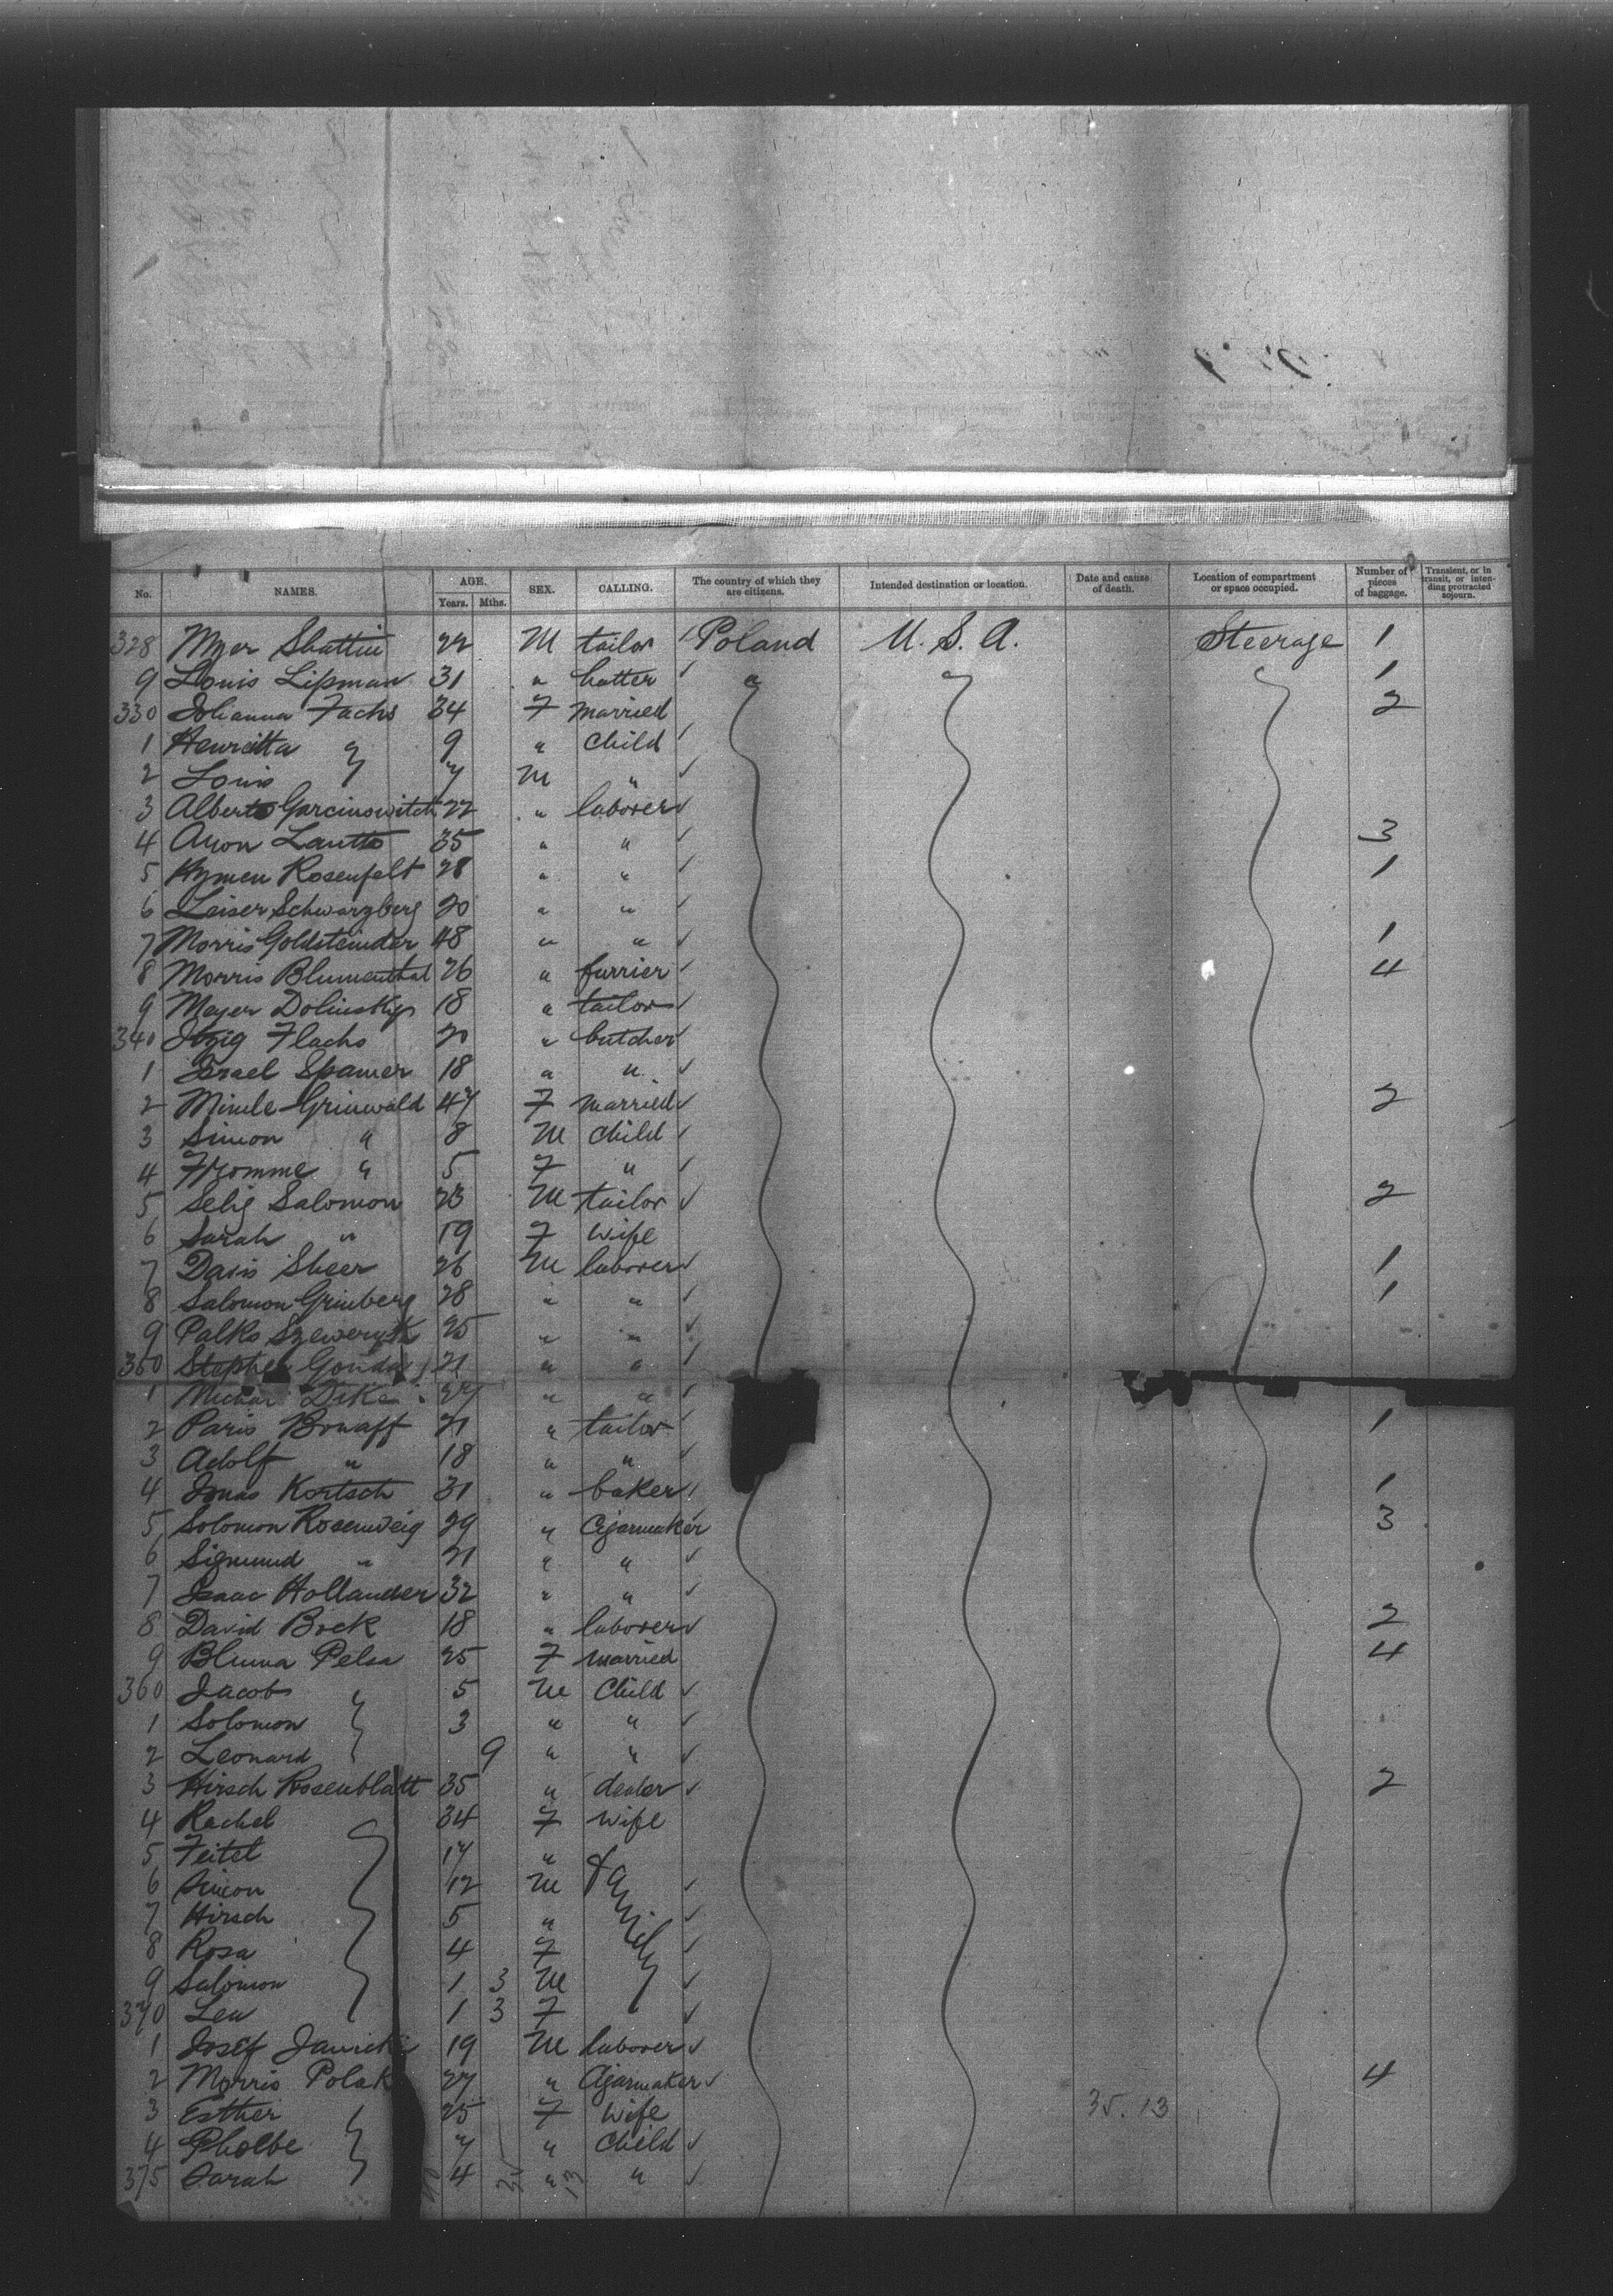 No. NAMES. AGE. Years. Mths. SEX. CALLING. The country of which they are citizens. Intended destination or location. Date and cause of death. Location of compartment or space occupied. Number of pieces of baggage. Transient, or in transit, or intending protracted sojourn.
328 Myer Shattin 22 M tailor Poland U. S. A. Steerage 1
9 Louis Lipman 31 " hatter 1
330 Johanna Fachs 34 F married 2
1 Henrietta " 9 " child
2 Louis 7 M "
3 Alberts Garcinowitch 22 " laborer
4 Aron Lautto 35 " " 3
5 Hymen Rosenfelt 28 " " 1
6 Leiser Schwarzberg 20 " "
7 Morris Goldsteinder 48 " " 1
8 Morris Blumenthal 26 " furrier 4
9 Meyer Dolinsky 18 " tailor
340 Itzig Flachs 20 " butcher
1 Israel Spamer 18 " "
2 Mindle Grinwald 47 F married 2
3 Simon " 8 M child
4 Fromme " 5 F "
5 Selig Salomon 23 M tailor 2
6 Sarah " 19 F wife
7 Davis Sheer 26 M laborer 1
8 Salomon Grinberg 28 " " 1
9 Palko Szeweryk 25 " "
350 Stephen Gonda 21 " "
1 Dzke 27 " "
2 Paris Bonaff 21 " tailor 1
3 Adolf " 18 " "
4 Jonas Kortsch 31 " baker 1
5 Solomon Rosenweig 29 " Cigarmaker 3
6 Sigmund " 21 " "
7 Isaac Hollander 32 " "
8 David Bock 18 " laborer 2
9 Bluma Pelsa 25 F married 4
360 Jacob " 5 M Child
1 Solomon 3 " "
2 Leonard 9 " "
3 Hirsch Rosenblatt 35 " dealer 2
4 Rachel 34 F wife
5 Feitel 17 " Family
6 Simon 12 M
7 Hirsch 5 "
8 Rosa 4 F
9 Salomon 1 3 M
370 Lea 1 3 F
1 Josef Janicki 19 M laborer
2 Morris Polak 27 " Cigarmaker 4
3 Esther 25 F wife 35. 13
4 Phoebe 7 " child
375 Sarah 4 " "
35 13